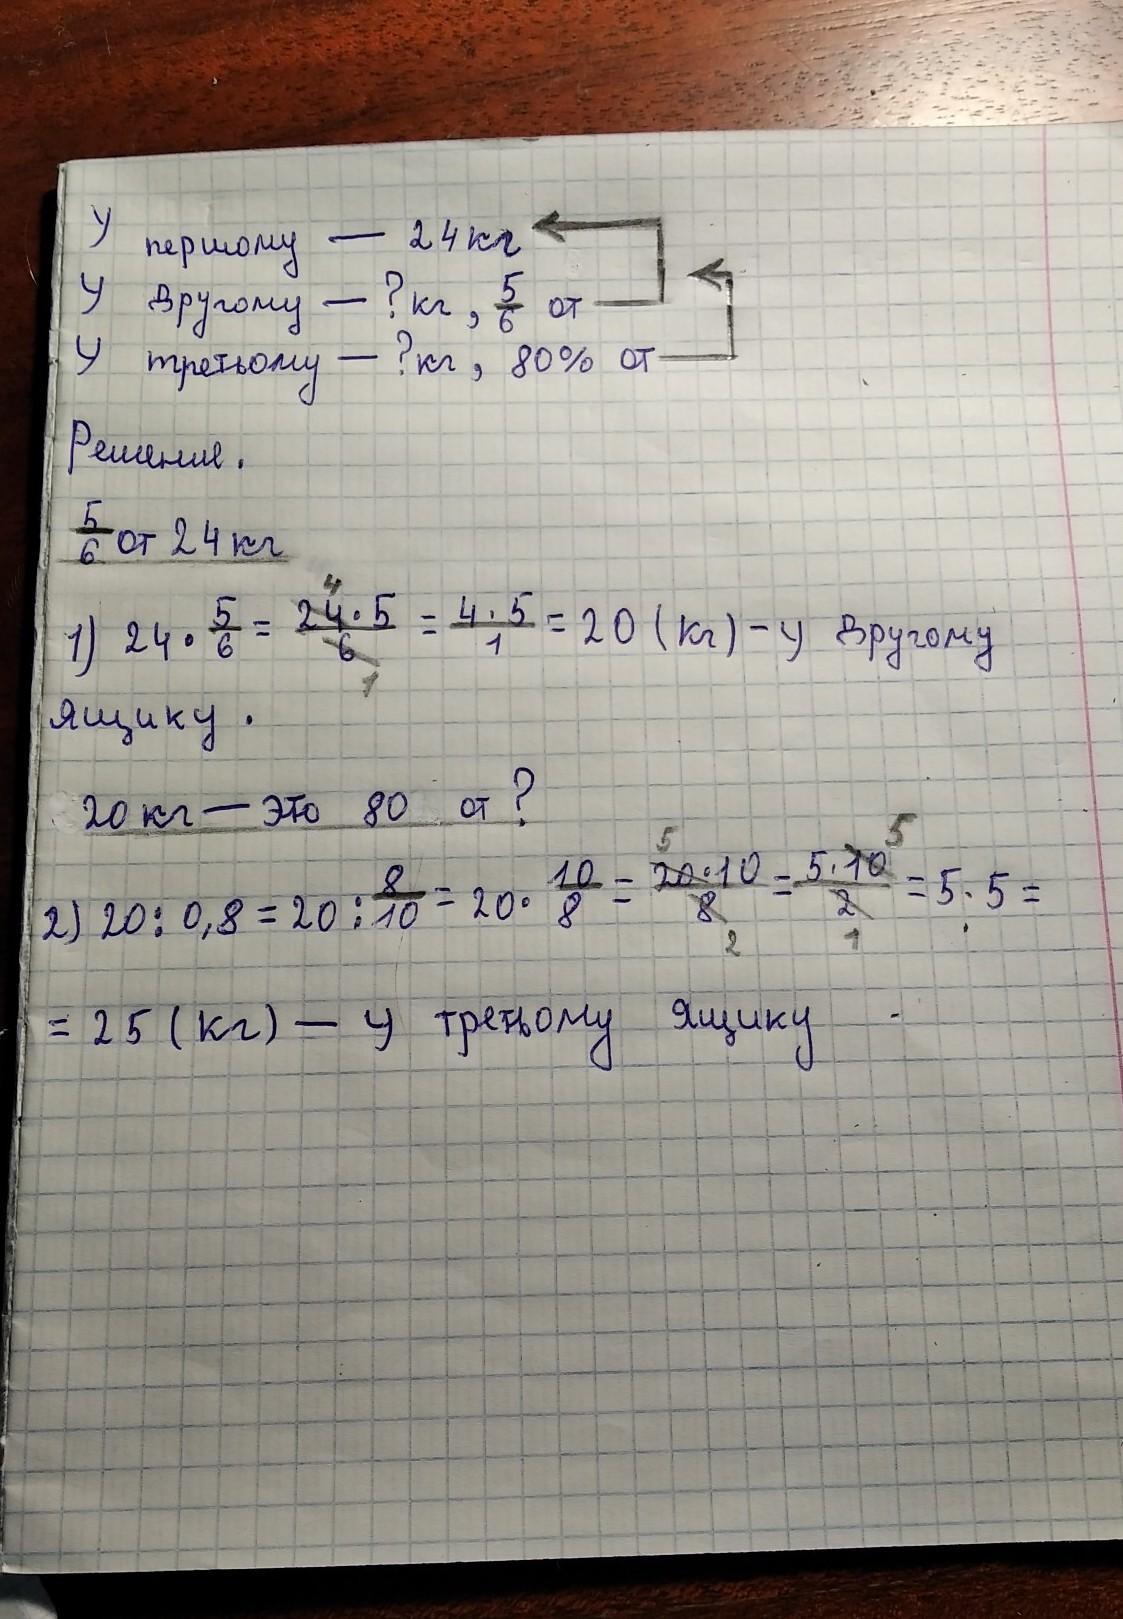 У першому — 24кг
У другому — ?кг, 5/6 от
У третьому — ?кг, 80% от
Решение.
5/6 от 24кг
1) 24 · 5/6 = 24·5/6 = 4·5/1 = 20 (кг) – у другому
4
1
ящику.
20кг — это 80 от ?
2) 20 : 0,8 = 20 : 8/10 = 20 · 10/8 = 20·10/8 = 5·10/2 = 5 · 5 =
5 5
2 1
= 25 (кг) — у третьому ящику